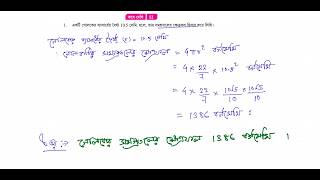 কষে দেখি 12
1. একটি গোলকের ব্যাসার্ধের দৈর্ঘ্য 10.5 সেমি. হলে, তার সমগ্রতলের ক্ষেত্রফল হিসাব করে লিখি।
গোলকের ব্যাসার্ধের দৈর্ঘ্য (r) = 10.5 সেমি
∴ গোলকটির সমগ্রতলের ক্ষেত্রফল = 4πr² বর্গসেমি
= 4 × 22/7 × 10.5² বর্গসেমি
= 4 × 22/7 × 105/10 × 105/10 বর্গসেমি
= 1386 বর্গসেমি
উঃ :- গোলকের সমগ্রতলের ক্ষেত্রফল 1386 বর্গসেমি ।